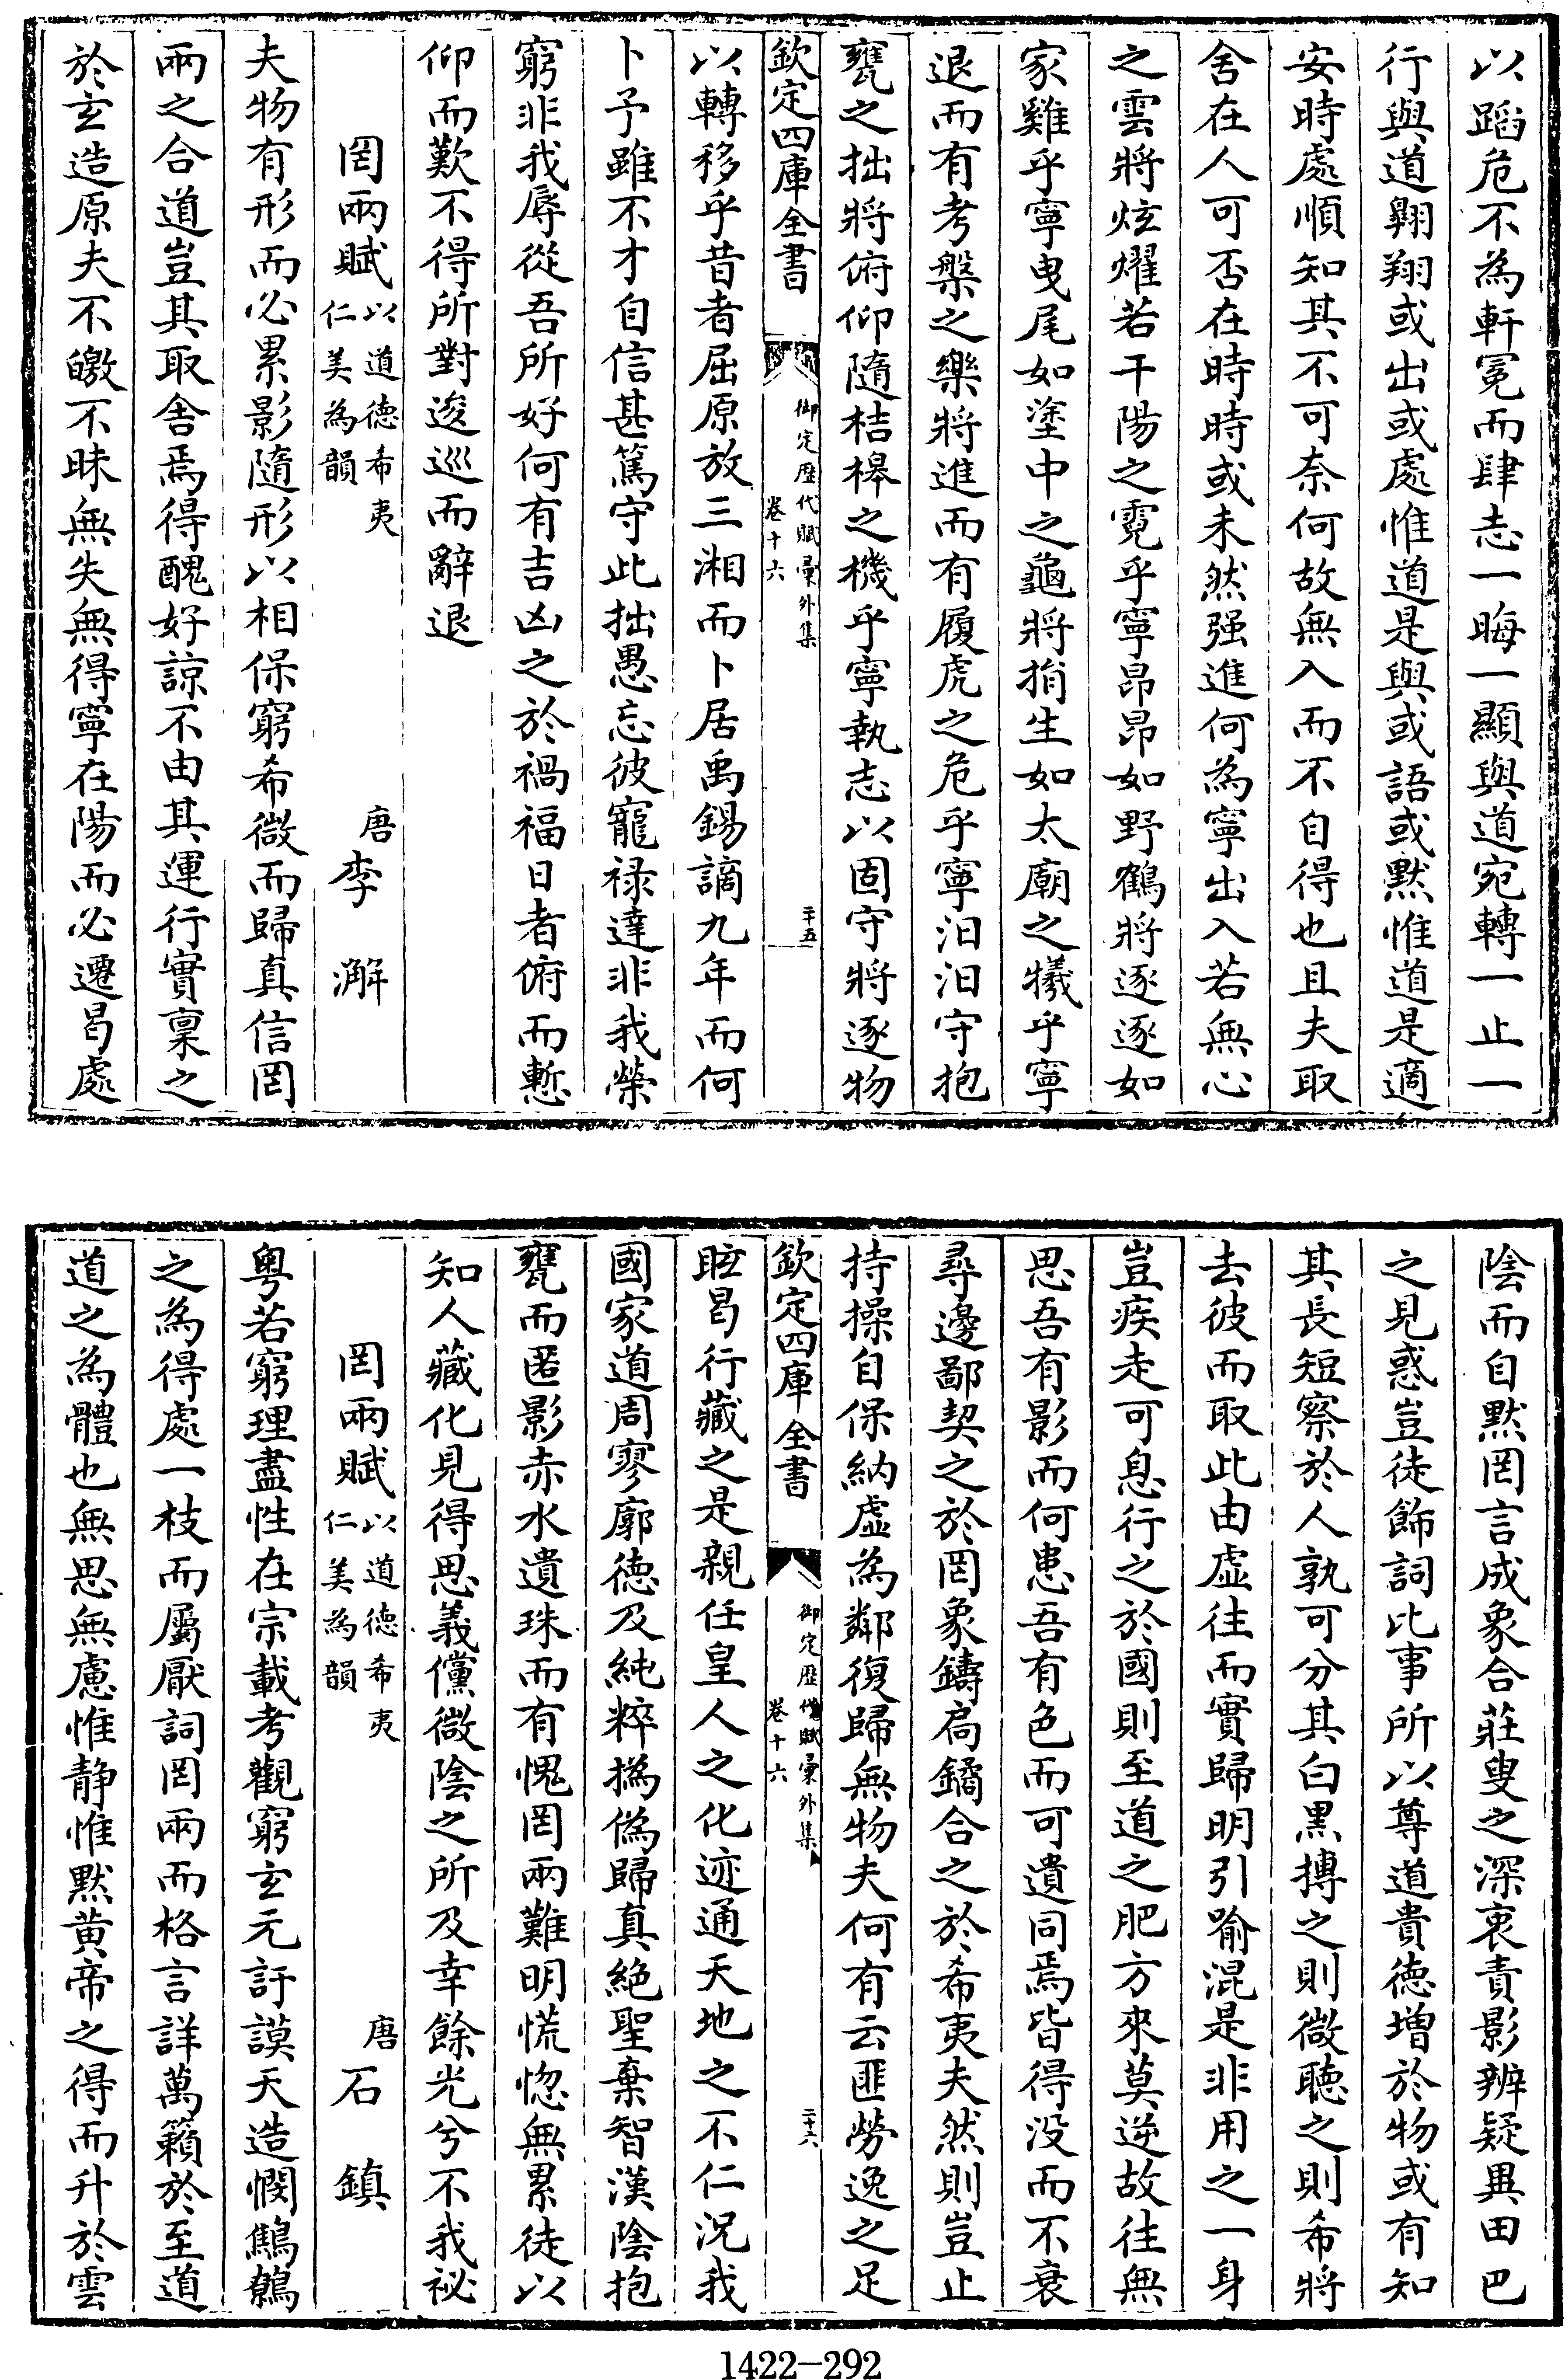 以蹈危不為軒冕而肆志一晦一顯與道宛轉一止一
行與道翺翔或出或處惟道是與或語或黙惟道是適
安時處順知其不可奈何故無入而不自得也且夫取
舍在人可否在時時或未然强進何為寧出入若無心
之雲將炫燿若干陽之霓乎寧昂昂如野鶴將逐逐如
家雞乎寧曳尾如塗中之龜將捐生如太廟之犧乎寧
退而有考槃之樂將進而有履虎之危乎寧汨汨守抱
甕之拙將俯仰隨桔槔之機乎寧執志以固守將逐物
欽定四庫全書
御定歴代賦彚外集
卷十六
二十五
以轉移乎昔者屈原放三湘而卜居禹錫謫九年而何
卜予雖不才自信甚篤守此拙愚忘彼寵祿達非我榮
窮非我辱從吾所好何有吉凶之於禍福日者俯而慙
仰而歎不得所對逡巡而辭退
罔兩賦以道德希夷仁美為韻
唐李澥
夫物有形而必累影隨形以相保窮希微而歸真信罔
兩之合道豈其取舍焉得醜好諒不由其運行實稟之
於玄造原夫不皦不昧無失無得寧在陽而必遷曷處
陰而自黙罔言成象合莊叟之深衷責影辨疑異田巴
之見惑豈徒飾詞比事所以尊道貴德增於物或有知
其長短察於人孰可分其白黒摶之則微聽之則希將
去彼而取此由虛往而實歸明引喻混是非用之一身
豈疾走可息行之於國則至道之肥方來莫逆故往無
思吾有影而何患吾有色而可遺同焉皆得没而不衰
尋邊鄙契之於罔象鑄扃鐍合之於希夷夫然則豈止
持操自保納虛為鄰復歸無物夫何有云匪勞逸之足
欽定四庫全書
御定歴代賦彚外集
卷十六
二十六
眩曷行藏之是親任皇人之化迹通天地之不仁況我
國家道周寥廓德及純粹撝偽歸真絶聖棄智漢陰抱
甕而匿影赤水遺珠而有愧罔兩難明慌惚無累徒以
知人藏化見得思義儻微陰之所及幸餘光兮不我祕
罔兩賦以道德希夷仁美為韻
唐石鎮
粤若窮理盡性在宗載考觀窮玄元訏謨天造憫鷦鷯
之為得處一枝而屬厭詞罔兩而格言詳萬籟於至道
道之為體也無思無慮惟静惟黙黄帝之得而升於雲
1422—292